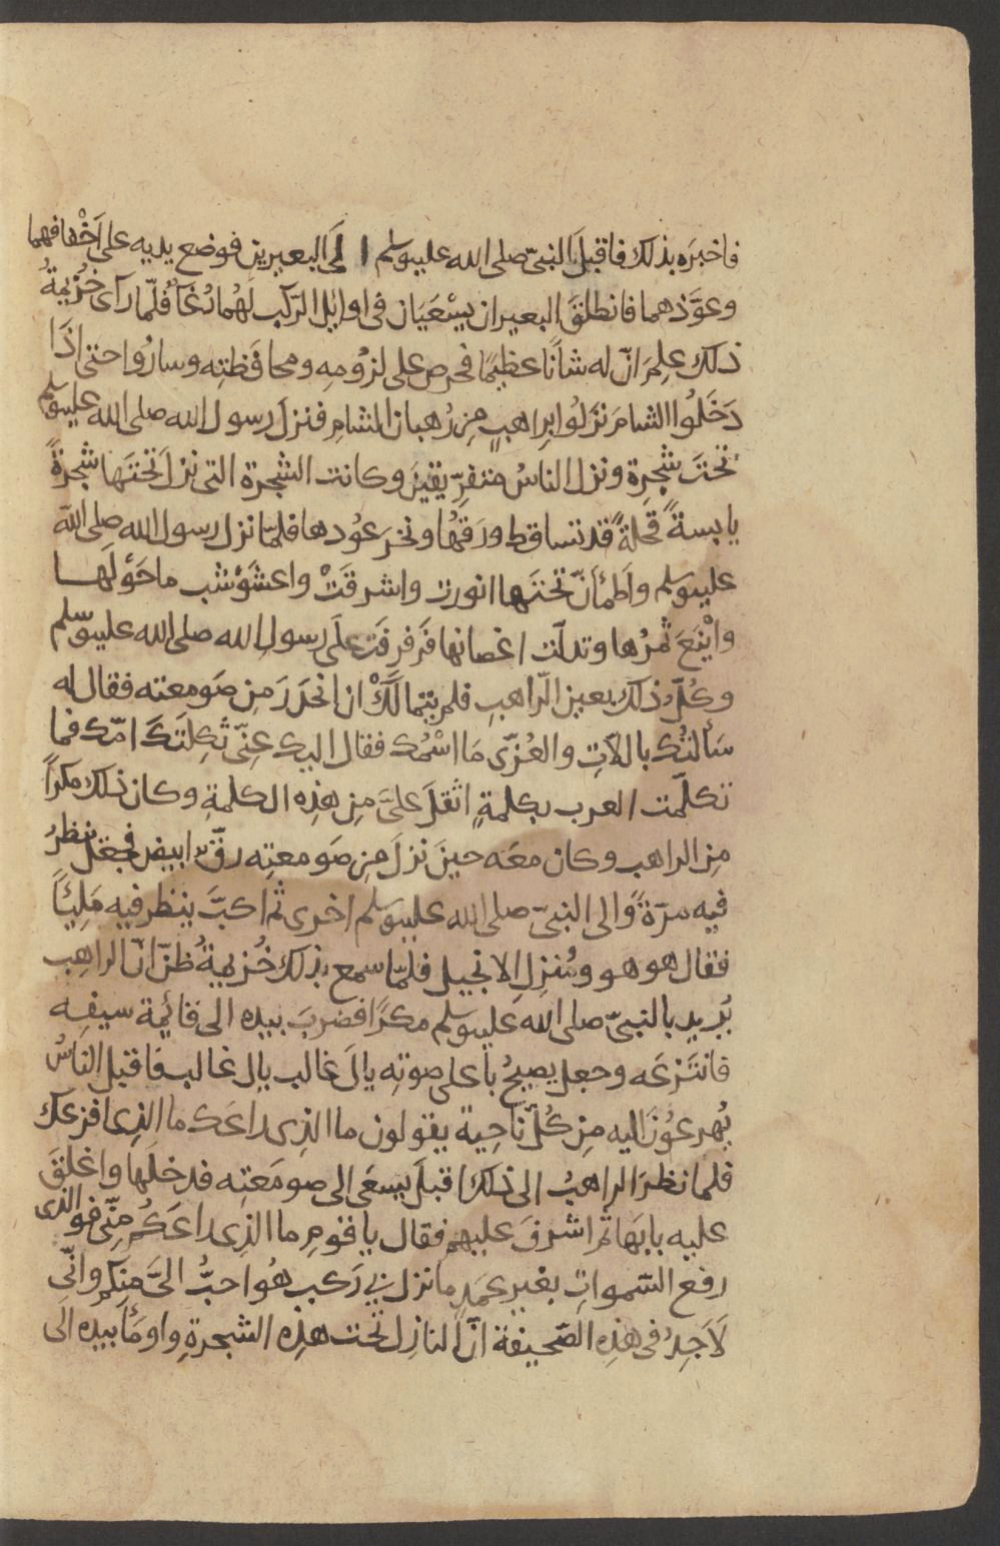 فاخبَره بذلك فاقبلَ النبيّ صلى الله عليه وسلم الَى البعيرين فوضع يديه على اَخْفافهما
وعوَّذهما فانطلقَ البعيران يسْعَيَان فى اوايل الرّكب لهُما رُغَآٌ فلمّا رآى خُزيمةُ
ذلك علِمَ انّ له شأنًا عظيمًا فحرص على لزُومِه ومحافَظتِه وسارُوا حتى اذَا
دَخَلُوا الشامَ نَزَلُوا براهبٍ مِن رُهبان الشامِ فنزل رسول الله صلى الله عليه وسلم
تحتَ شجرة ونزل الناسُ متفرِّيقينَ وكانت الشجرة التى نزل تحتَها شجرةً
يابسةً قَحلةً قد تساقط ورَقُها ونخرَ عُودها فلمّا نزل رسول الله صلى الله
عليه وسلم واَطمأنّ تحتَها انورت واشرقَتْ واعشَوْشب ما حَوْلَها
واَيْنَعَ ثمرُها وتدلّت اغصانها فَرفرفَت علَى رسول الله صلى الله عليه وسلم
وكُلّ ذلك بعين الرّاهبِ فلم يتمالَكْ ان انحدَرَ مِن صَومعته فقال له
سَألتُك بالّلاتِ والعُزّى مَا اسْمُك فقال اليك عنِّى ثكِلتكَ امّك فما
تكلّمت العرب بكلمةٍ اثقلَ علىَّ مِن هذِه الكلمةِ وكان ذلك مكرًا
مِن الراهب وكان معَه حينَ نزلَ مِن صَومعتِه رقّ ابيض فجعَل ينظرُ
فيه مرّةً وَالى النبىّ صلى الله عليه وسلم اخرى ثم اكبَّ ينظر فيه مَليًّا
فقال هو هو ومُنزِل الانجيل فلمّا سمع بذلك خُزيمةُ ظنّ انّ الراهب
يُريد بالنبىّ صلى الله عليه وسلم مكرًا فضربَ بيده الى قائمة سيفِه
فانتَزعَه وجعل يصيحُ باعلى صوتِه يالَ غالب يال غالب فاقبل الناسُ
يُهرعُونَ اليه مِن كُلّ ناحِية يقولون ما الذِى راعَك ما الذِى افزعك
فلما نظرَ الراهبُ الى ذلك اقبلَ يسعَى الى صومَعتِه فدخلَها واغلقَ
عليه بابَها ثم اشرفَ عليهم فقال يا قومِ ما الذِى راعَكُم مِنّى فوالذى
رفع السّمواتِ بغير عَمَدٍ ما نزل بى رَكب هُو احبُّ الىَّ منكم وانّى
لاَجِدُ فى هذِه الصّحيفة انّ النازِلَ تحت هذِه الشجرةِ واومَأ بيده الَى